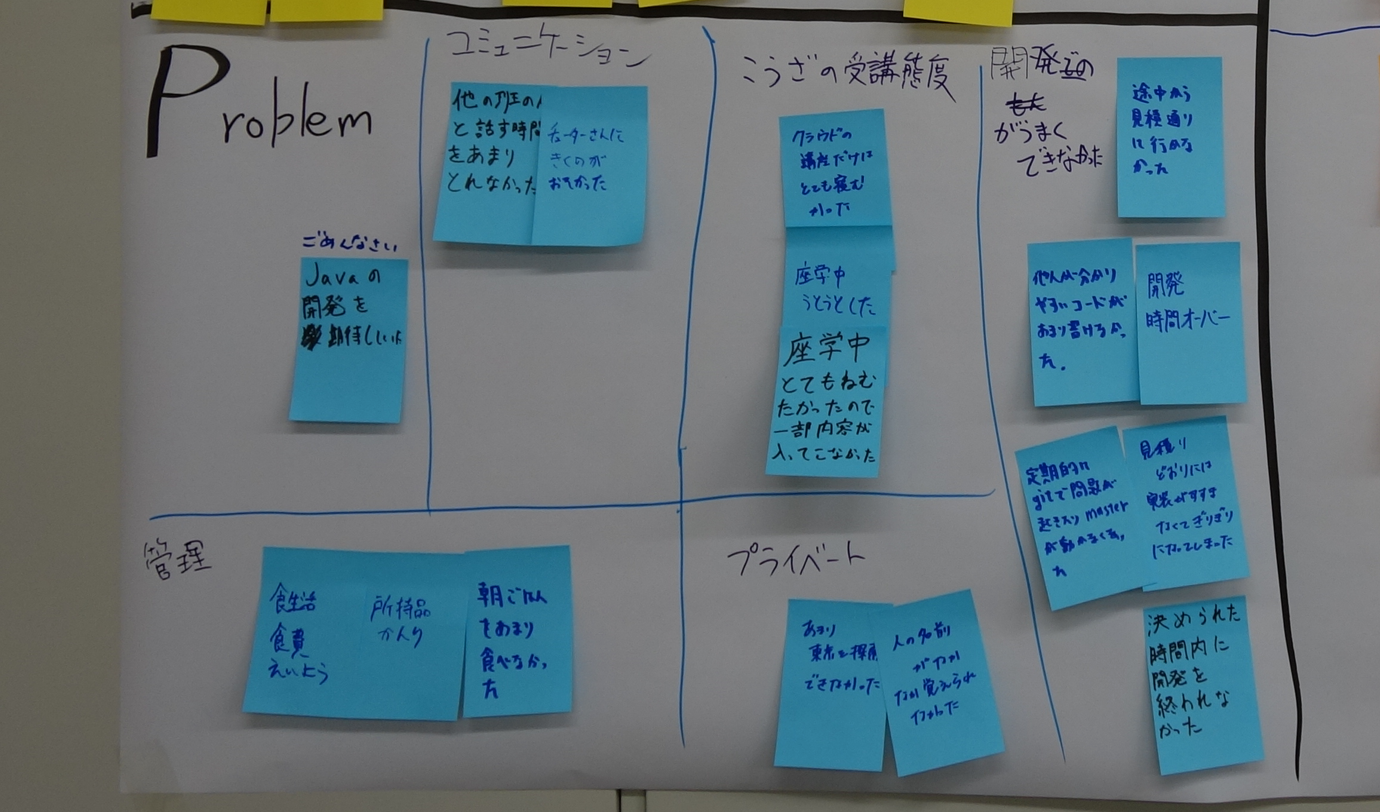 Problem
ごめんなさい
Javaの
開発を
期待していた
コミュニケーション
他の班の人
と話す時間
をあまり
とれなかった
チューターさんに
きくのが
おそかった
こうざの受講態度
クラウドの
講座だけは
とても寝む
かった
座学中
うとうとした
座学中
とてもねむ
たかったので
一部内容が
入ってこなかった
開発での
がうまく
できなかった
途中から
見積通り
に行かな
かった
他人が分かり
やすいコードが
あまり書けなかっ
た。
開発
時間オーバー
定期的に
gitで問題が
起きたりmaster
が動かなくなっ
た
見積り
どおりには
実装がすすま
なくてぎりぎり
になってしまった
決められた
時間内に
開発を
終われな
かった
管理
食生活
食費
えいよう
所持品
かんり
朝ごはん
をあまり
食べなかっ
た
プライベート
あまり
東京を探索
できなかった
人の名前
がなか
なか覚えられ
なかった